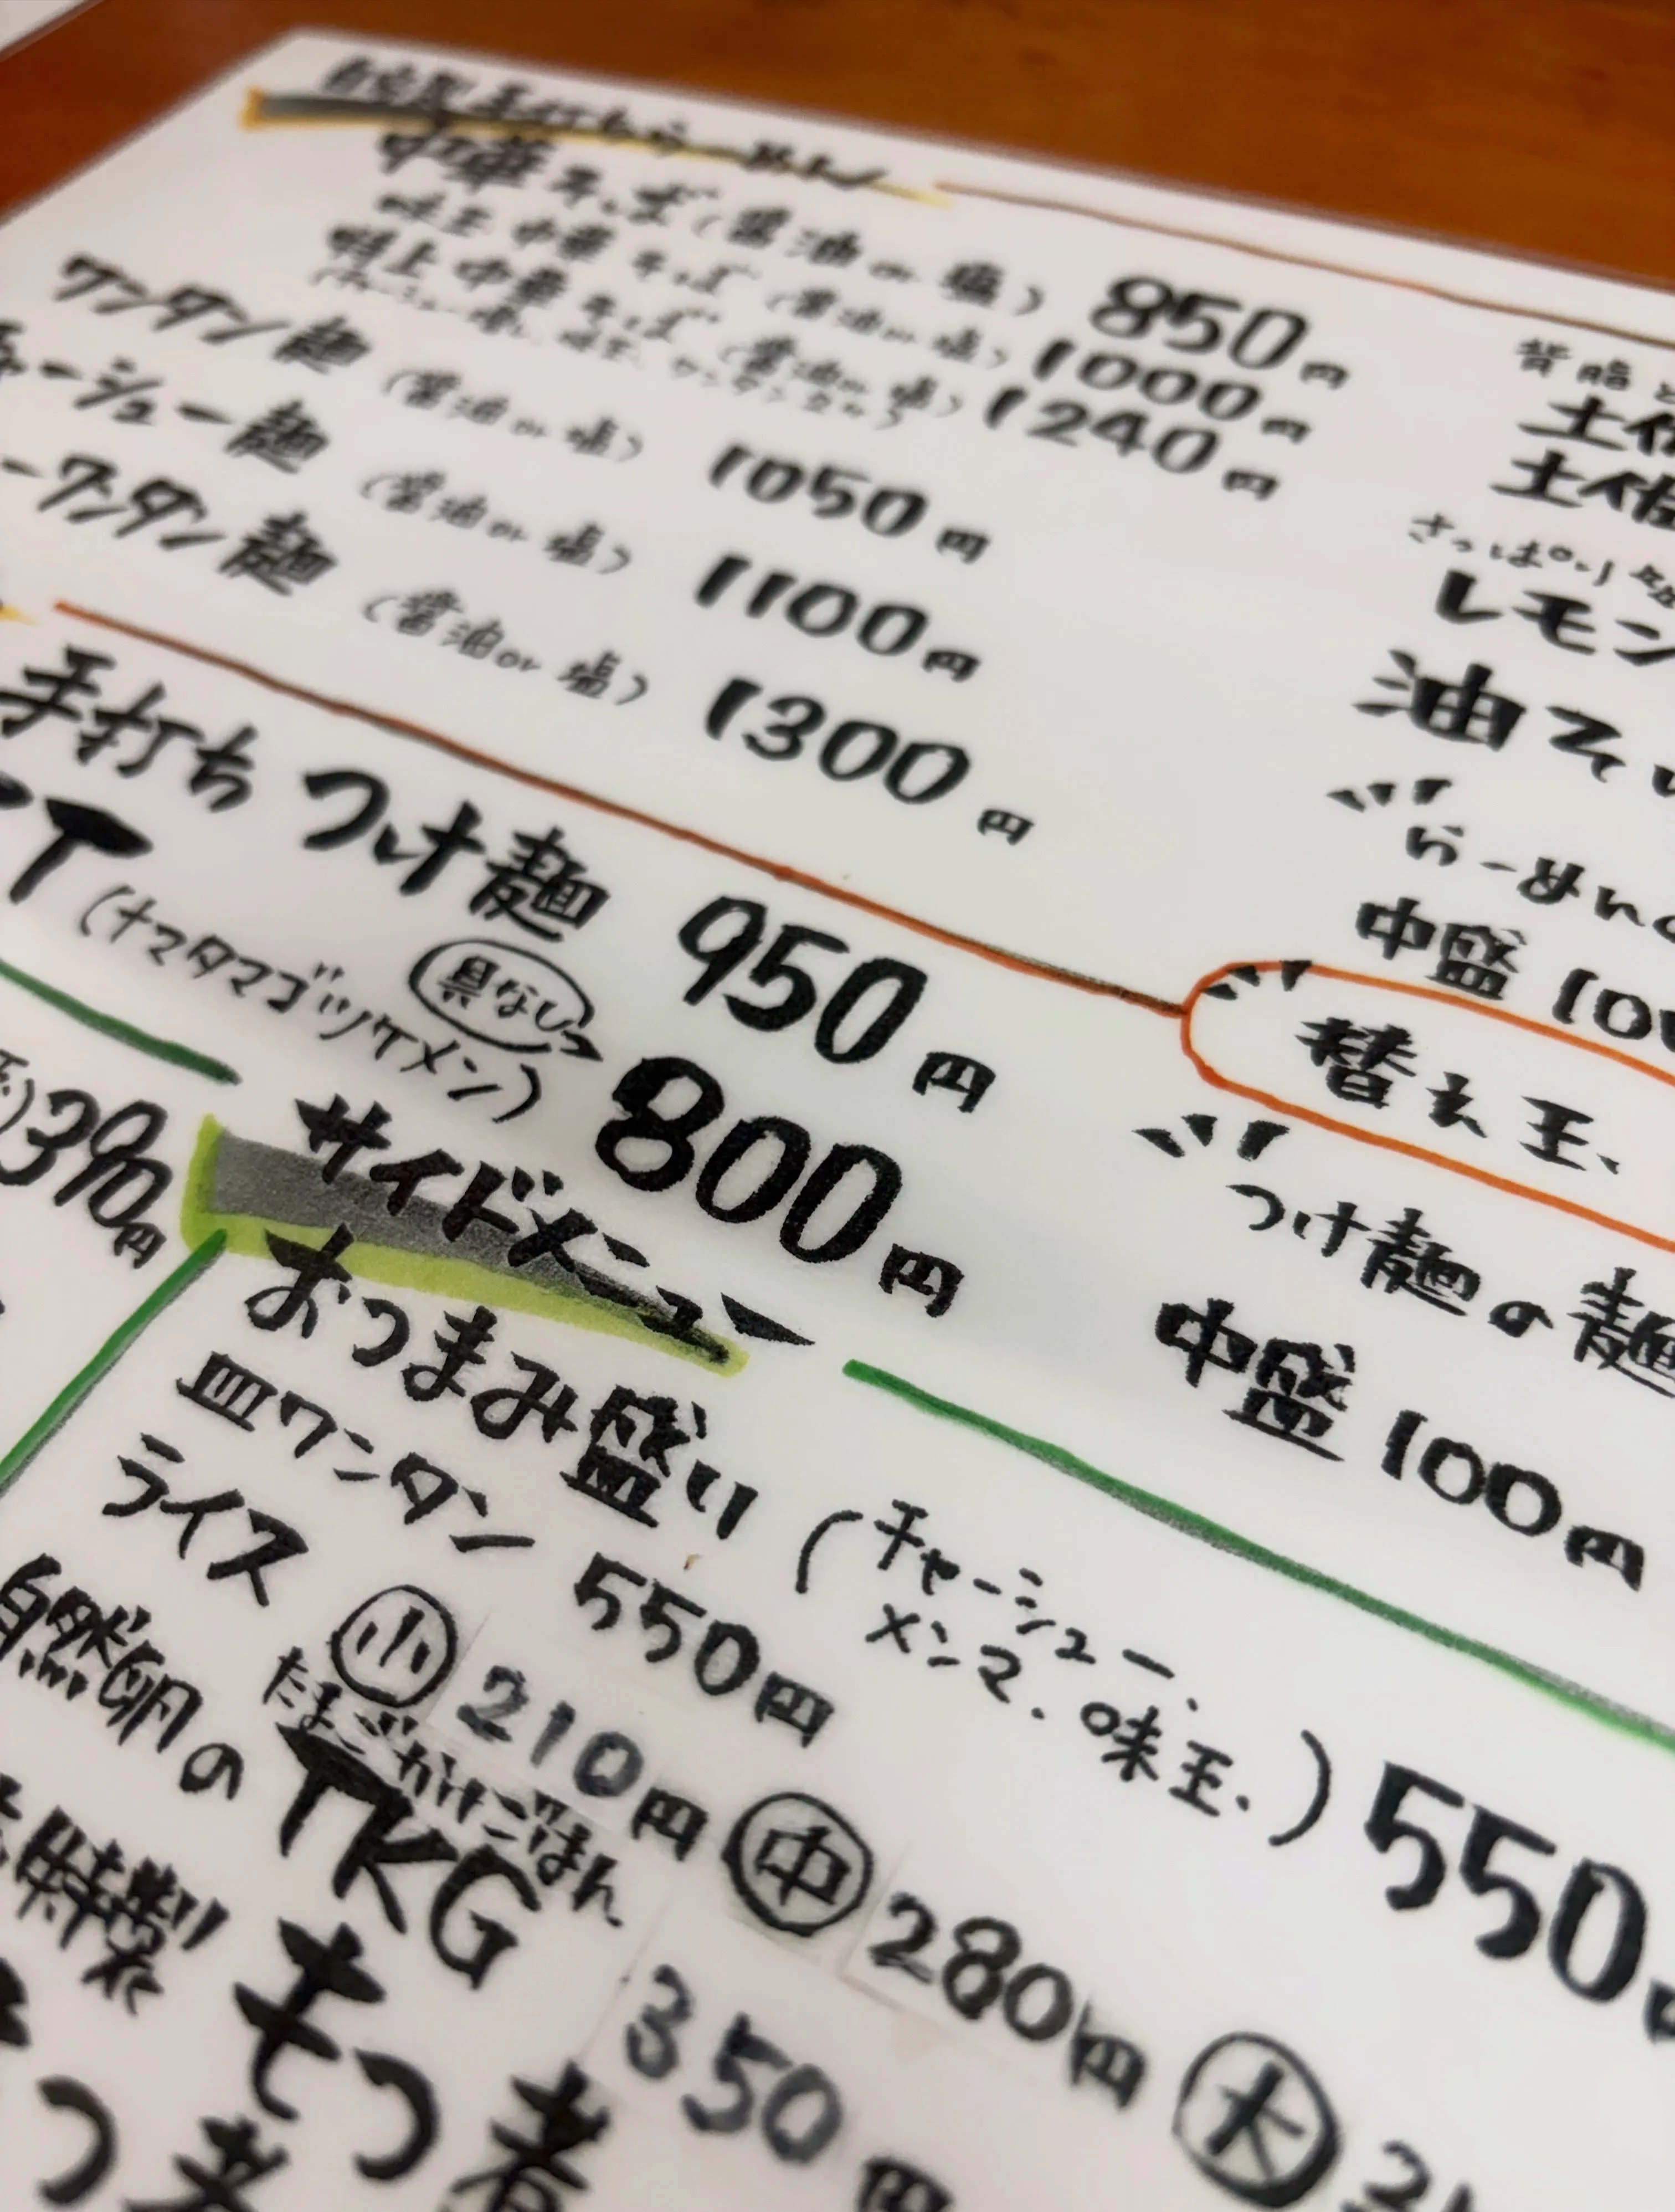 自家製手打ちらーめん
中華そば（醤油or塩） 850円
味玉中華そば（醤油or塩） 1000円
特上中華そば（醤油or塩） 1240円
ワンタン麺（醤油or塩） 1050円
チャーシュー麺（醤油or塩） 1100円
ーワンタン麺（醤油or塩） 1300円
背脂
土佐
土佐
さっぱり
レモン
油そ
らーめんの
中盛 100
替え玉、
手打ちつけ麺 950円
具なし
TT（ナマタマゴツケメン） 800円
つけ麺の麺
中盛 100円
390円
サイドメニュー
おつまみ盛り（チャーシュー、メンマ、味玉、） 550
皿ワンタン 550円
ライス 小 210円 中 280円 大
たまごかけごはん
自然卵のTKG 350円
特製 もつ煮
つ煮